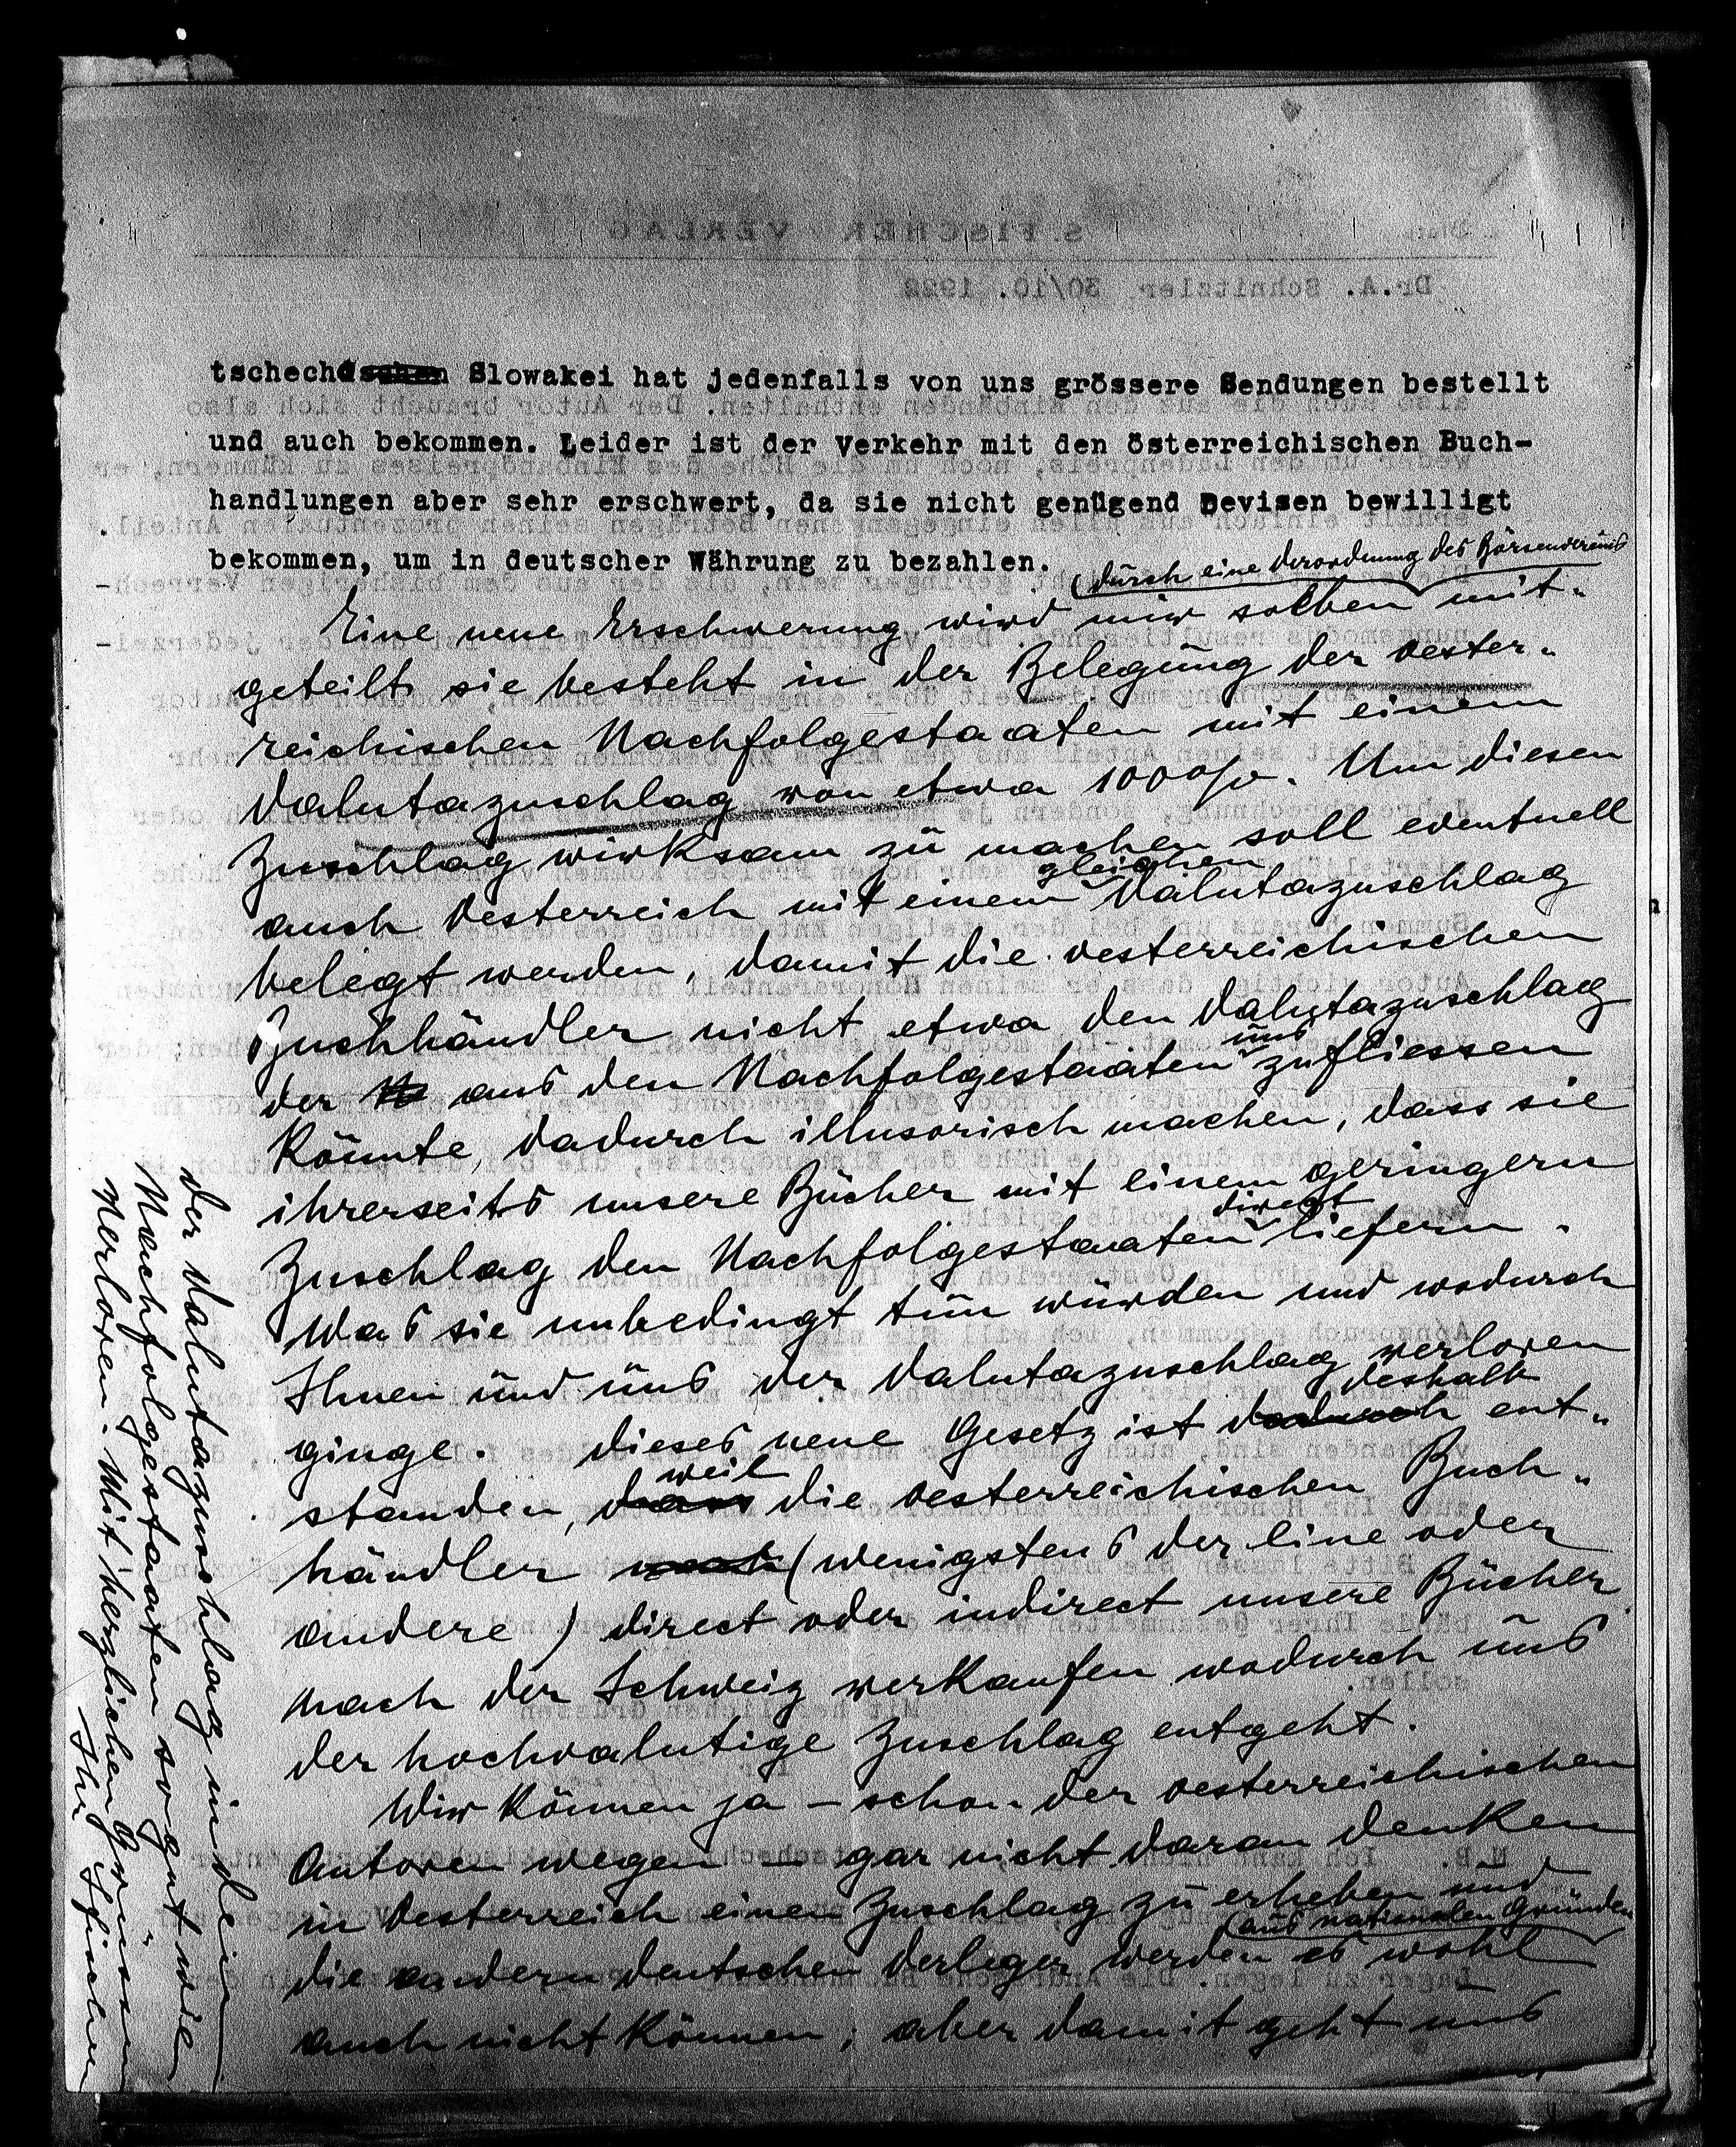 tschecho Slowakei hat jedenfalls von uns grössere Sendungen bestellt
und auch bekommen. Leider ist der Verkehr mit den österreichischen Buch-
handlungen aber sehr erschwert, da sie nicht genügend Devisen bewilligt
bekommen, um in deutscher Währung zu bezahlen.
(durch eine Verordnung des Börsenvereins
Eine neue Erschwerung wird mir soeben mit-
geteilt, sie besteht in der Belegung der oester-
reichischen Nachfolgestaaten mit einem
Valutazuschlag von etwa 100%. Um diesen
Zuschlag wirksam zu machen soll eventuell
auch Oesterreich mit einem gleichen Valutazuschlag
belegt werden, damit die oesterreichischen
Buchhändler nicht etwa den Valutazuschlag
der aus den Nachfolgestaaten uns zufliessen
könnte, dadurch illusorisch machen, dass sie
ihrerseits unsere Bücher mit einem geringern
Zuschlag den Nachfolgestaaten direct liefern.
Was sie unbedingt tun würden und wodurch
Ihnen und uns der Valutazuschlag verloren
ginge. Dieses neue Gesetz ist dadurch deshalb ent-
standen, dass weil die oesterreichischen Buch-
händler nach (wenigstens der eine oder
andere) direct oder indirect unsere Bücher
nach der Schweiz verkaufen wodurch uns
der hochvalutige Zuschlag entgeht.
Wir können ja – schon der oesterreichischen
Autoren wegen – gar nicht daran denken
in Oesterreich einen Zuschlag zu erheben und
(aus nationalen Gründen
die andern deutschen Verleger werden es wohl
auch nicht können; aber damit geht uns
der Valutazuschlag in den
Nachfolgestaaten so gut wie
verloren. Mit herzlichen Grüssen
Ihr SFischer
S. FISCHER VERLAG
Dr.A. Schnitzler 30/10. 1922